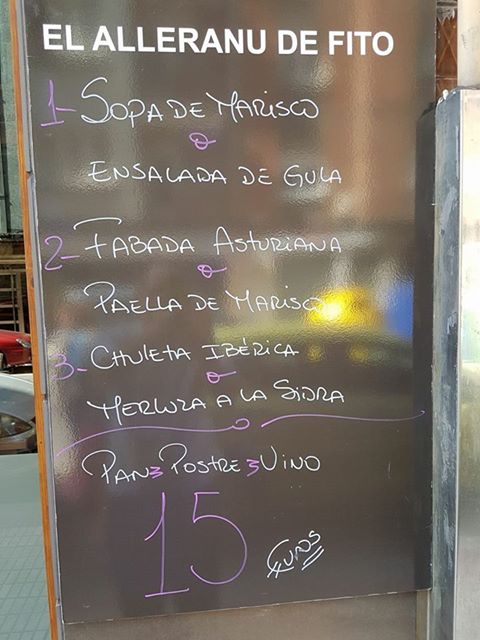 EL ALLERANU DE FITO
1- SOPA DE MARISCO
o
ENSALADA DE GULA
2- FABADA ASTURIANA
o
PAELLA DE MARISCO
3- CHULETA IBÉRICA
o
MERLUZA A LA SIDRA
PAN POSTRE VINO
15 EUROS